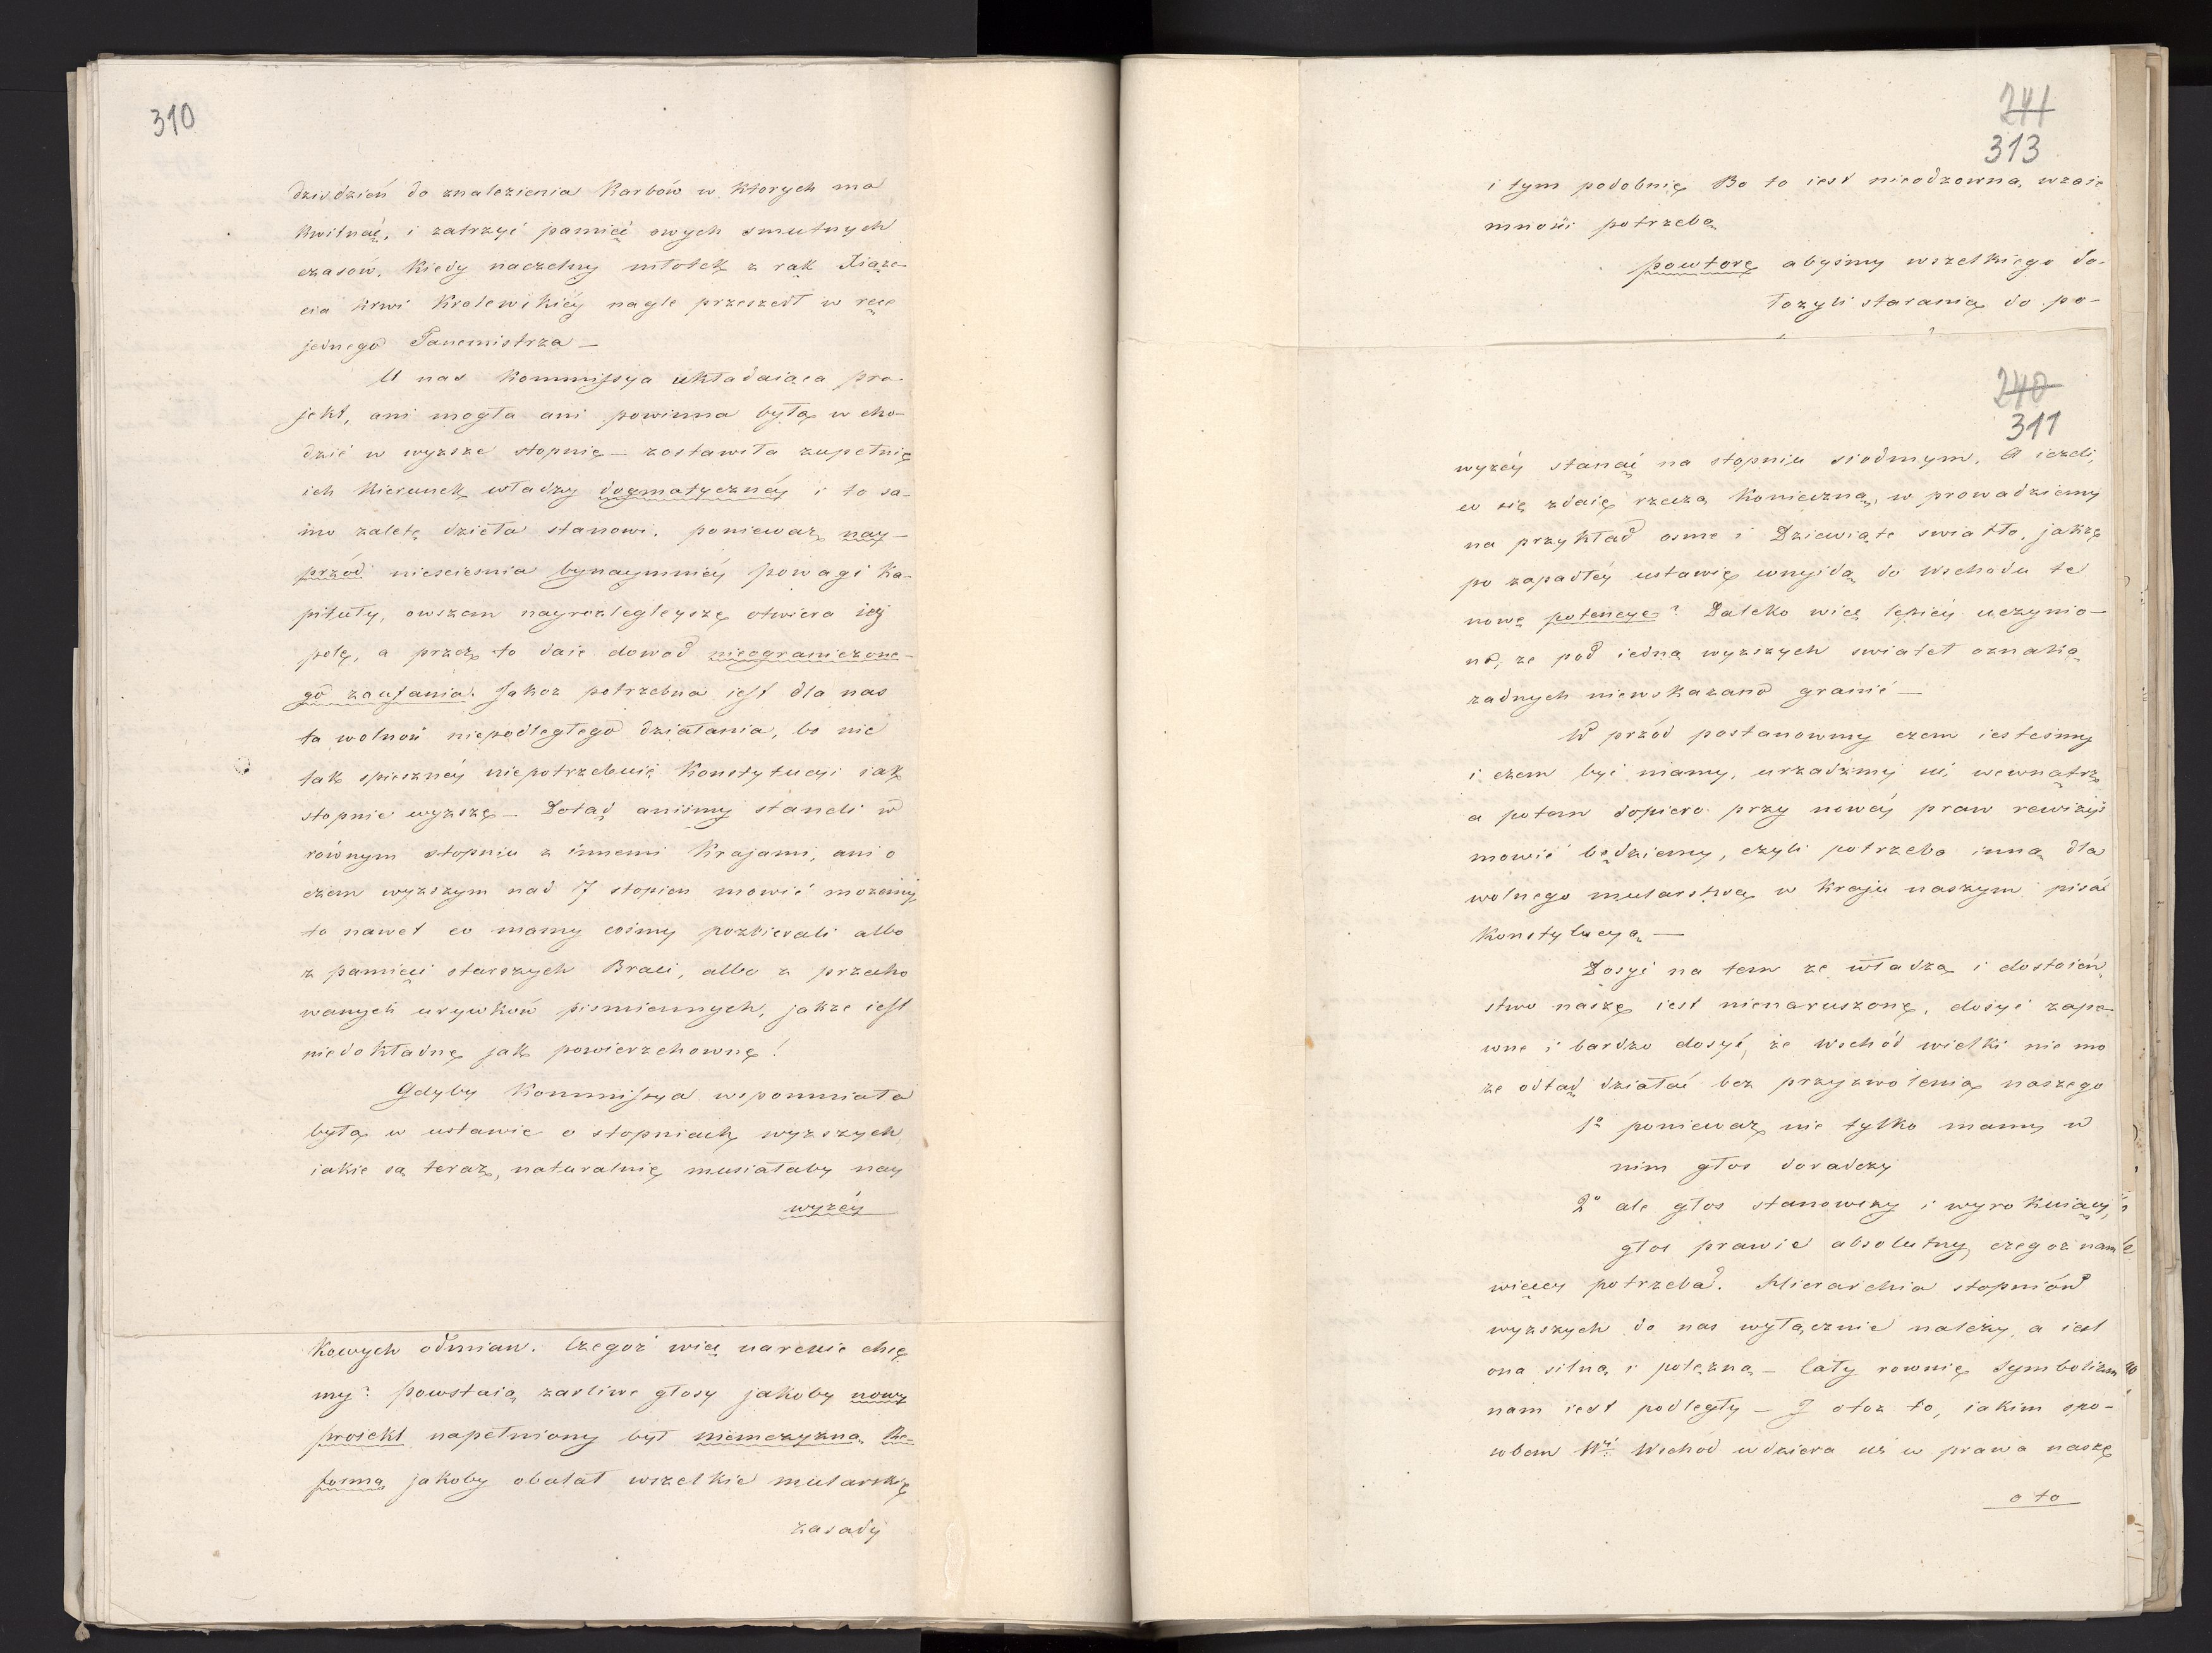 310
dzisdzień do znalezienia Karbów w ktorych ma
kwitnąć, i zatrzyć pamięć owych smutnych
czasów, kiedy naczelny młotek z rąk Xiąże-
cia krwi Krolewskiéy nagle przeszedł w ręce
jednego Tancmistrza —
U nas Kommissya układaiąca pro-
jekt, ani mogła ani powinna była w cho-
dzić w wyzsze stopnie — zostawiła zupełnie
ich kierunek władzy dogmatycznéy i to sa-
mo zaletę dzieła stanowi. ponieważ nay-
przód niesciesnia bynaymniéy powagi Ka-
pituły, owszem nayrozlegleysze otwiera iéy
pole, a przez to daie dowod nieograniczone-
go zaufania. Jakoz potrzebna iest dla nas
ta wolność niepodległego działania, bo nic
tak spieszney niepotrzebuie Konstytucyi iak
stopnie wyzsze — Dotąd aniśmy stanęli w
równym stopniu z innemi Krajami, ani o
czem wyzszym nad 7 stopień mowić mozemy
to nawet co mamy cośmy pozbierali albo
z pamięci starszych Braci, albo z przecho
wanych urywków pismiennych, jakze iest
niedokładne jak powierzchowne!
Gdyby Kommissya wspomniała
była w ustawie o stopniach wyzszych
iakie są teraz, naturalnie musiałaby nay
wyzéy
kowych odmian. Czegoż więc wreszcie chce
my? powstaią zarliwe głosy jakoby nowy
proiekt napełniony był niemczyzną. Re-
forma jakoby obalał wszelkie mularskie
zasady
241
313
i tym podobnie Bo to iest nieodzowna wzaie
mności potrzeba
powtore abyśmy wszelkiego do-
łozyli starania do po-
240
311
wyzéy stanąć na stopniu siodmym. A iezeli,
co się zdaie rzeczą konieczną, w prowadziemy
na przykład osme i Dziewiąte swiatło, jakze
po zapadłéy ustawie wnyidą do Wschodu te
nowe potencye? Daleko więc lepiéy uczynio-
no, ze pod iedną wyzszych swiateł oznaką
zadnych niewskazano granic —
W przód postanowmy czem iesteśmy
i czem być mamy, urządźmy się wewnątrz
a potem dopiero przy nowéy praw rewizyi
mowić będziemy, czyli potrzeba inną dla
wolnego mularstwa w Kraju naszym pisać
Konstytucyą —
Dosyć na tem ze władza i dostoień-
stwo nasze iest nienaruszone, dosyć zape-
wne i bardzo dosyć, że Wschód wielki nie mo
ze odtąd działać bez przyzwolenia naszego
1º ponieważ nie tylko mamy w
nim głos doradczy
2º ale głos stanowczy i wyrokuiący,
głos prawie absolutny czegoz nam
więcey potrzeba?. Hierarchia stopniów
wyzszych do nas wyłącznie nalezy, a iest
ona silną i potęzną — Cały rownie Symbolizm
nam iest podległy — J otoz to, iakim spo-
sobem Wi Wschód wdziera się w prawa nasze
o to